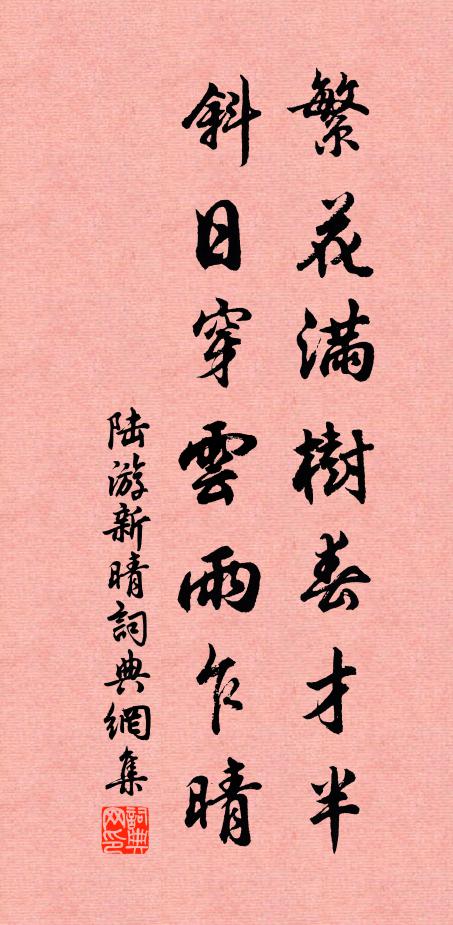 繁花滿樹春才半
斜日穿雲雨乍晴
陸游新晴詞典網集
詞典
网印